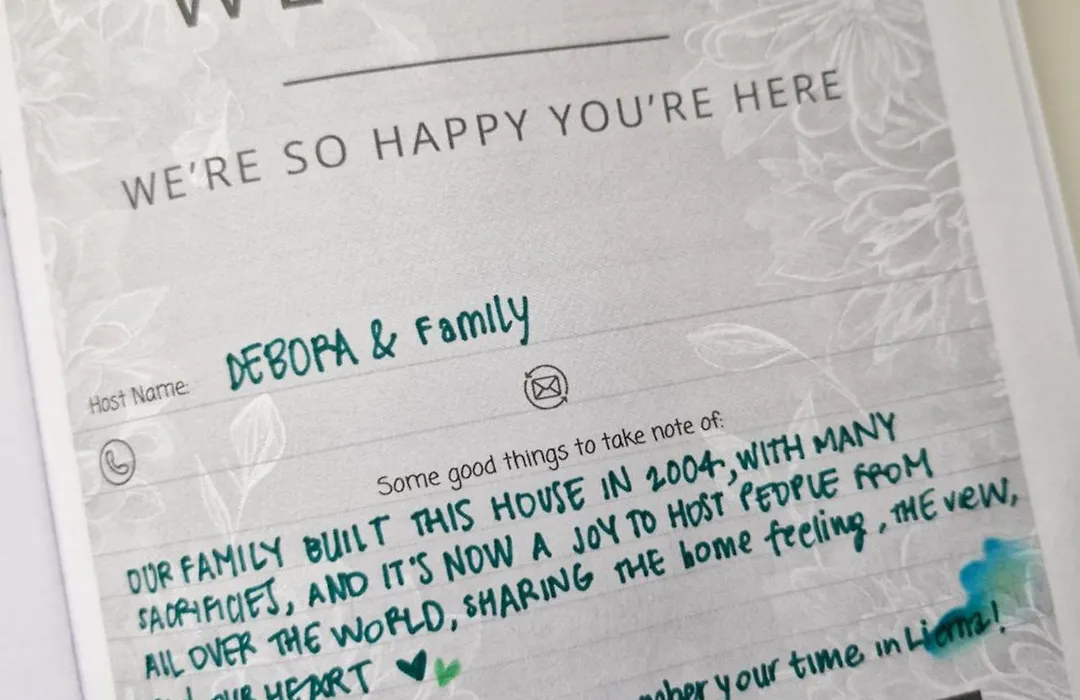 WE'RE SO HAPPY YOU'RE HERE
Host Name: DEBORA & Family
Some good things to take note of:
OUR FAMILY BUILT THIS HOUSE IN 2004, WITH MANY
SACRIFICIES, AND IT'S NOW A JOY TO HOST PEOPLE FROM
All OVER THE WORLD, SHARING THE home feeling, THE view,
OUR HEART
your time in Lierna!